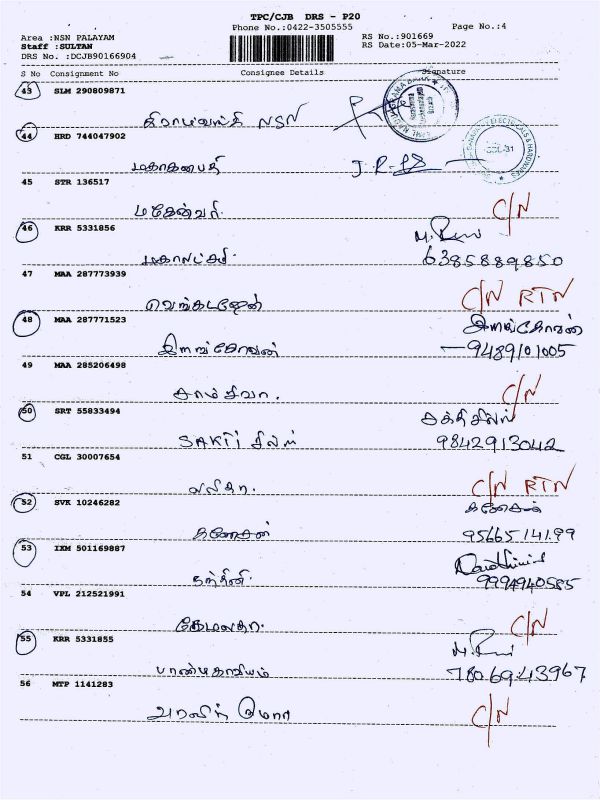 TPC/CJB DRS - P20
Phone No.:0422-3505555
Page No.:4
Area :NSN PALAYAM
RS No.:901669
Staff :SULTAN
RS Date:05-Mar-2022
DRS No. :DCJB90166904
S No Consignment No Consignee Details Signature
43 SLM 290809871
NSN
44 HRD 744047902
மகாகணபதி
45 STR 136517
மகேஸ்வரி. C/N
46 KRR 5331856
மகாலட்சுமி. 6385889850
47 MAA 287773939
வெங்கடஜேன் C/N RTN
48 MAA 287771523 இளங்கோவன்
இளங்கோவன் 9489101005
49 MAA 285206498
சாம்சிவா. C/N
50 SRT 55833494 சக்திசில்ஸ்
SAKTI சில்ஸ் 9842913042
51 CGL 30007654
லலிதா. C/N RTN
52 SVK 10246282 கணேசன்
கணேசன் 9566514199
53 IXM 501169887
நந்தினி. 9994940585
54 VPL 212521991
ஹேமலதா. C/N
55 KRR 5331855
7806943967
56 MTP 1141283
C/N